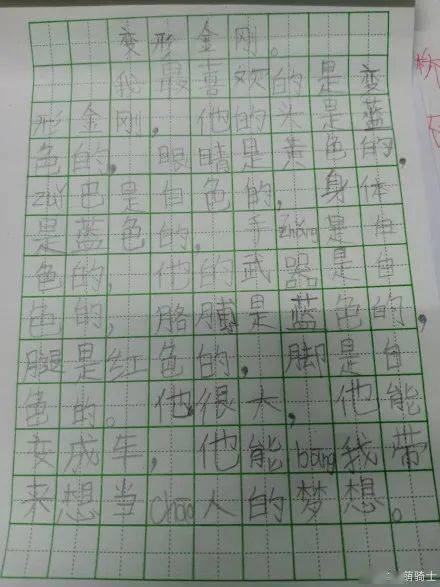 变形金刚。
我最喜欢的是变
形金刚，他的头是蓝
色的，眼睛是黄色的，
zuǐ巴是白色的，身体
是蓝色的，手zhǎng是白
色的，他的武器是白
色的，胳膊是蓝色的，
腿是红色的，脚是白
色的。他很大，他能
变成车，他能bāng我带
来想当chāo人的梦想。
萌骑士